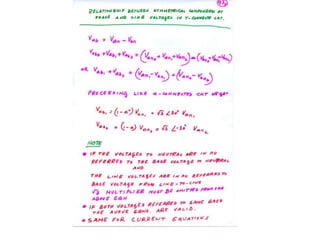 RELATIONSHIP BETWEEN SYMMETRICAL COMPONENTS OF
PHASE AND LINE VOLTAGES IN Y-CONNECTED CKT.
Vab = Van - Vbn
Vab0 + Vab1 + Vab2 = (Van0 + Van1 + Van2) - (Vbn0 + Vbn1 + Vbn2)
OR Vab1 + Vab2 = (Van1 - Vbn1) + (Van2 - Vbn2)
PROCEEDING LIKE Δ-CONNECTED CKT WE GET
Vab1 = (1 - a²) Van1 = √3 ∠30° Van1
Vab2 = (1 - a) Van2 = √3 ∠-30° Van2
NOTE
* IF THE VOLTAGES TO NEUTRAL ARE IN PU
REFERRED TO THE BASE VOLTAGE TO NEUTRAL
AND
THE LINE VOLTAGES ARE IN PU REFERRED TO
BASE VOLTAGE FROM LINE-TO-LINE
√3 MULTIPLIER MUST BE OMITTED FROM THE
ABOVE EQN
* IF BOTH VOLTAGES REFERRED TO SAME BASE
THE ABOVE EQNS. ARE VALID.
* SAME FOR CURRENT EQUATIONS